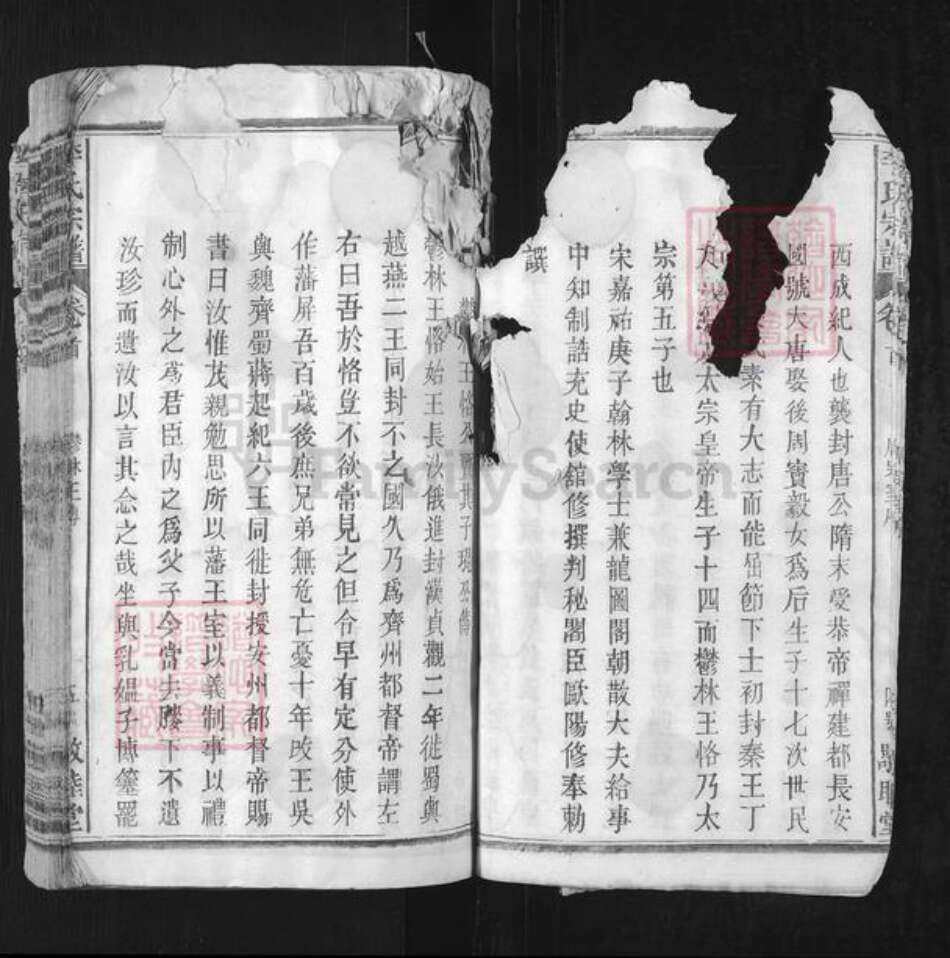 李氏宗譜
卷首
西成紀人也襲封唐公隋末受恭帝禪建都長安
國號大唐娶後周竇毅女爲后生子十七次世民
素有大志而能屈節下士初封秦王丁
太宗皇帝生子十四而鬱林王恪乃太
宗第五子也
宋嘉祐庚子翰林學士兼龍圖閣朝散大夫給事
中知制誥充史使舘修撰判秘閣臣歐陽修奉勅
譔
鬱林王恪始王長沙俄進封漢貞觀二年徙蜀與
越燕二王同封不之國久乃爲齊州都督帝謂左
右曰吾於恪豈不欲常見之但令早有定分使外
作藩屏吾百歲後庶兄弟無危亡憂十年改王吳
與魏齊蜀蔣起紀六王同徙封授安州都督帝賜
書曰汝惟茂親勉思所以藩王室以義制事以禮
制心外之爲君臣內之爲父子今當去膝下不遺
汝珍而遺汝以言其念之哉坐與乳媼子博簺罷
李氏宗譜
卷首
鬱林王傳
敦睦堂
FamilySearch